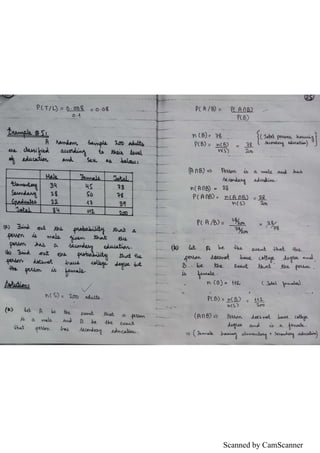 P(T/L) = 0.008 = 0.08
0.1
Example # 5:
A random sample 200 adults
are classified according to their level
of education and sex as below:
Male Female Total
Elementary 34 45 78
Secondary 28 50 78
Graduates 22 17 39
Total 84 112 200
(a) Find out the probability that a
person is male given that the
person has a secondary education.
(b) Find out the probability that the
person doesnot have college degree
the person is female.
Solution:
n(S) = 200 adults
(a) let A be the event that a person
is a male and B be the event
that person has secondary education.
P(A/B) = P(A∩B)
P(B)
n(B) = 78 {(total persons having secondary education)}
P(B) = n(B) = 78
n(S) 200
(A∩B) => Person is a male and has
secondary education
n(A∩B) = 28
P(A∩B) = n(A∩B) = 28
n(S) 200
P(A/B) = 28/200 = 28/78
78/200
(b) let A be the event that the
person doesnot have college degree and
B be the event that the person
is female.
n(B) = 112 (total females)
P(B) = n(B) = 112
n(S) 200
(A∩B) => Person doesnot have college
degree and is a female.
=> (Female having elementary + Secondary education)
Scanned by CamScanner